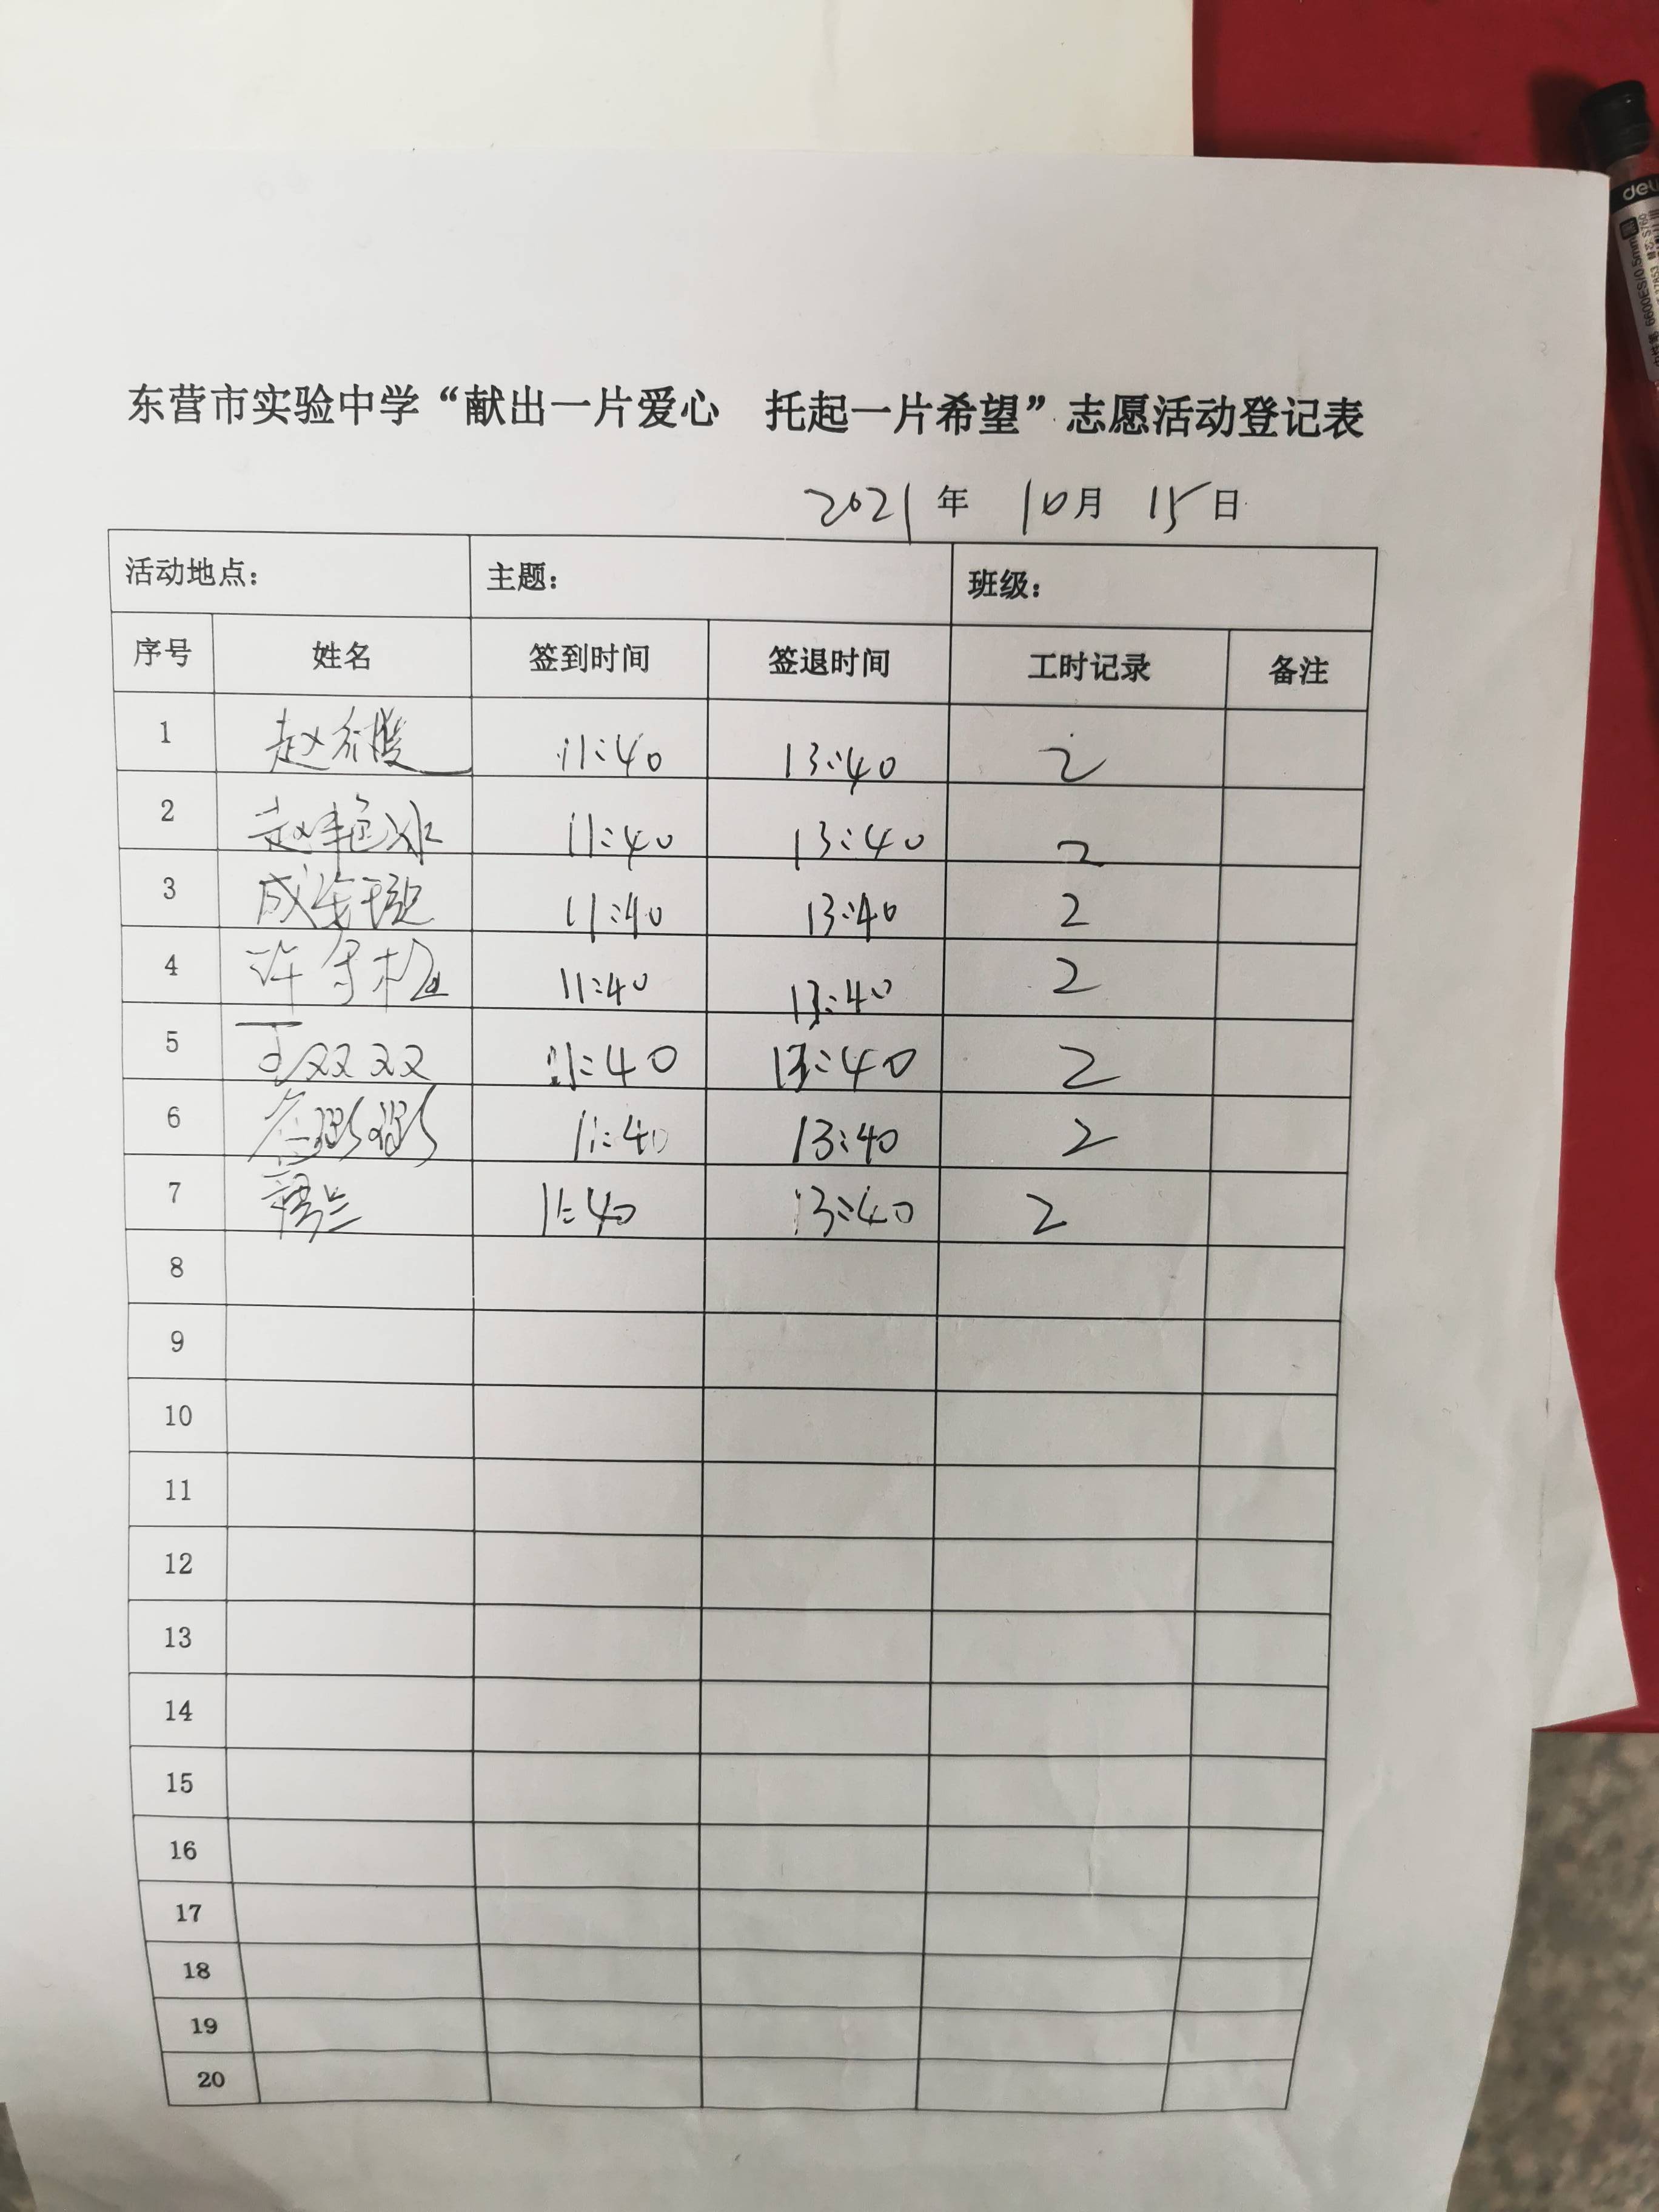 deli
6600ES/0.5mm
东营市实验中学“献出一片爱心 托起一片希望”志愿活动登记表
2021 年 10月 15日
活动地点： 主题： 班级：
序号 姓名 签到时间 签退时间 工时记录 备注
1 赵 11:40 13:40 2
2 赵艳冰 11:40 13:40 2
3 成 11:40 13:40 2
4 许 11:40 13:40 2
5 王双双 11:40 13:40 2
6 11:40 13:40 2
7 11:40 13:40 2
8
9
10
11
12
13
14
15
16
17
18
19
20